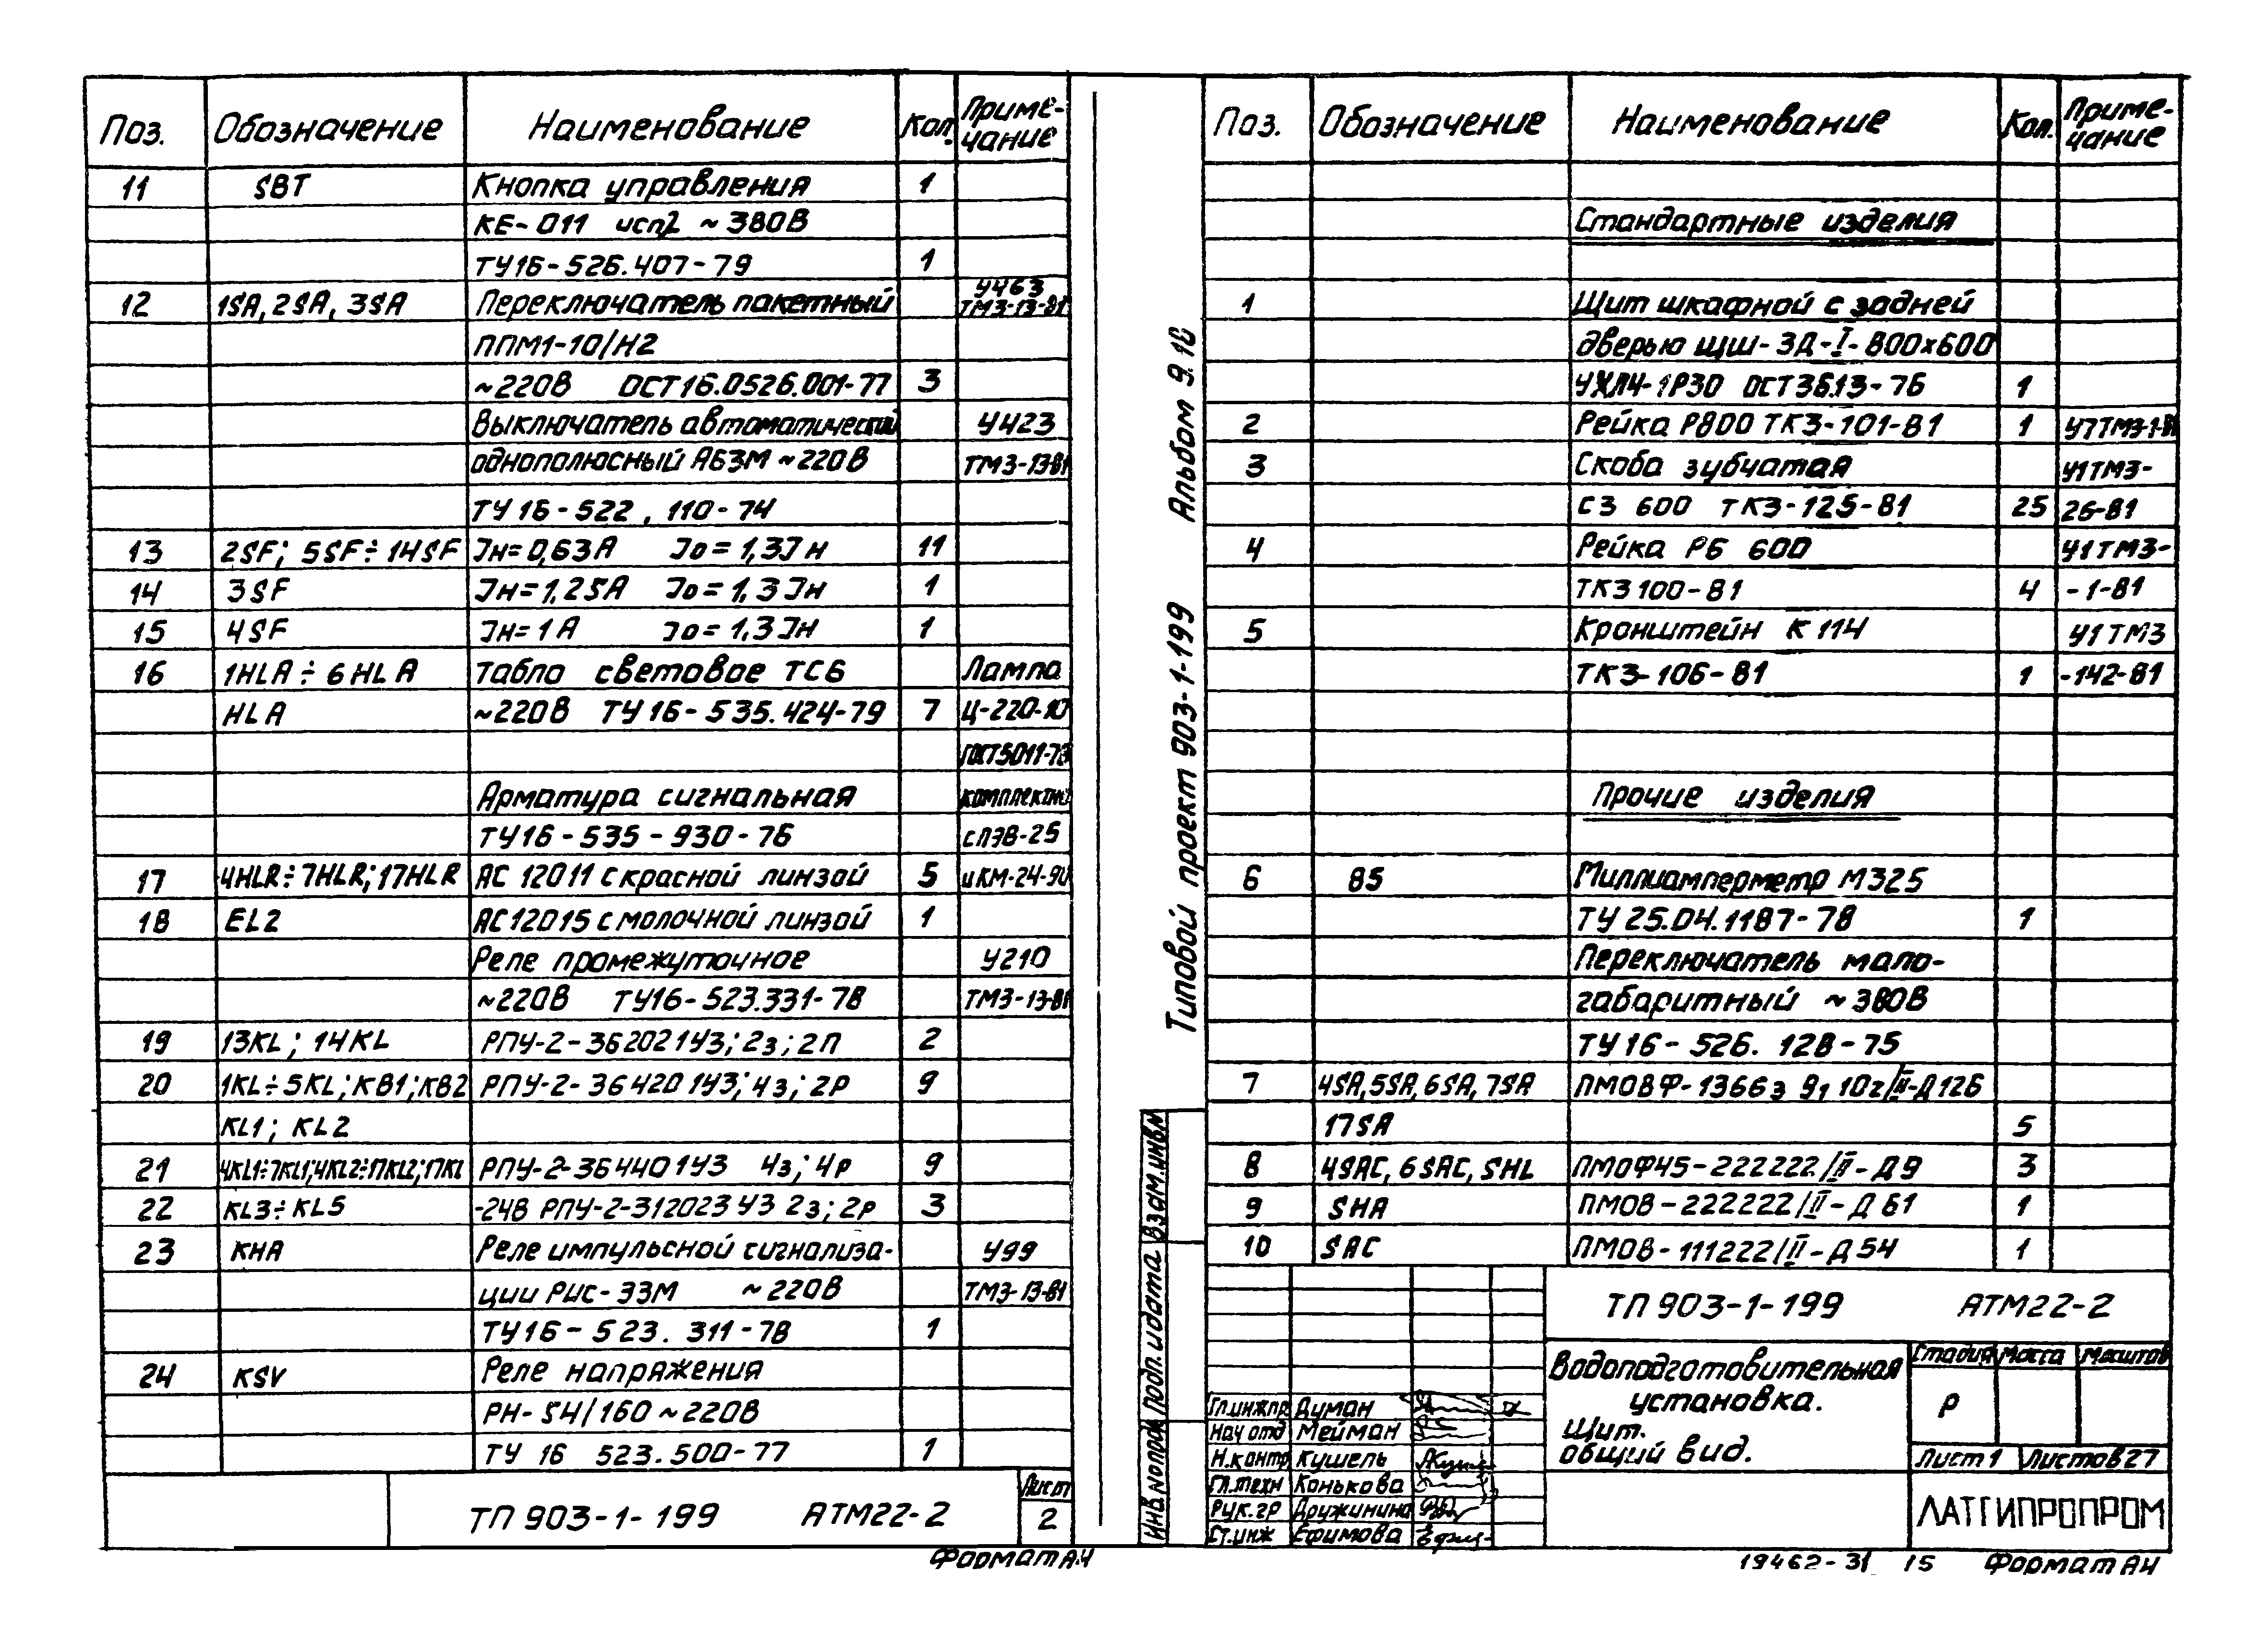 Поз. Обозначение Наименование Кол. Приме-
чание
11 SBT Кнопка управления 1
КЕ-011 исп2 ~380В
ТУ16-526.407-79 1
12 1SA, 2SA, 3SA Переключатель пакетный У463
ТМ3-13-81
ППМ1-10/Н2
~220В ОСТ16.0526.001-77 3
Выключатель автоматический У423
однополюсный А63М ~220В ТМ3-13-81
ТУ 16-522, 110-74
13 2SF; 5SF÷14SF Jн=0,63А Jо=1,3Jн 11
14 3SF Jн=1,25А Jо=1,3Jн 1
15 4SF Jн=1А Jо=1,3Jн 1
16 1HLA÷6HLA Табло световое ТСБ Лампа
HLA ~220В ТУ16-535.424-79 7 Ц-220-10
ГОСТ5011-73
Арматура сигнальная комплектно
ТУ16-535-930-76 с ПЭВ-25
17 4HLR÷7HLR; 17HLR АС 12011 с красной линзой 5 и КМ-24-90
18 EL2 АС12015 с молочной линзой 1
Реле промежуточное У210
~220В ТУ16-523.331-78 ТМ3-13-81
19 13KL; 14KL РПУ-2-362021У3; 2з; 2П 2
20 1KL÷5KL; KB1; KB2 РПУ-2-364201У3; 4з; 2Р 9
KL1; KL2
21 4KL1÷7KL1; 4KL2÷17KL2; 17KL РПУ-2-364401У3 4з; 4р 9
22 KL3÷KL5 -24В РПУ-2-312023 У3 2з; 2р 3
23 КНА Реле импульсной сигнализа- У99
ции РИС-33М ~220В ТМ3-13-81
ТУ16-523.311-78 1
24 KSV Реле напряжения
РН-54/160 ~220В
ТУ 16 523.500-77 1
ТП 903-1-199 АТМ22-2 Лист
2
Формат А4
Типовой проект 903-1-199 Альбом 9.10
Поз. Обозначение Наименование Кол. Приме-
чание
Стандартные изделия
1 Щит шкафной с задней
дверью ЩШ-ЗД-I-800х600
УХЛ4-1Р30 ОСТ36.13-76 1
2 Рейка Р800 ТК3-101-81 1 У7ТМ3-1-81
3 Скоба зубчатая У1ТМ3-
С3 600 ТК3-125-81 25 26-81
4 Рейка РБ 600 У1ТМ3-
ТК3100-81 4 -1-81
5 Кронштейн К 114 У1ТМ3
ТК3-106-81 1 -142-81
Прочие изделия
6 85 Миллиамперметр М325
ТУ 25.04.1187-78 1
Переключатель мало-
габаритный ~380В
ТУ16-526.128-75
7 4SA, 5SA, 6SA, 7SA ПМОВФ-1366з 91 10г/II-Д126
17SA 5
8 4SAC, 6SAC, SHL ПМОФ45-222222/II-Д9 3
9 SHA ПМОВ-222222/II-Д61 1
10 SAC ПМОВ-111222/II-Д54 1
ИНВ.№ПОДЛ Подп. и дата Взам.инв№
ТП 903-1-199 АТМ22-2
Водоподготовительная
установка.
Щит.
Общий вид.
Стадия Масса Масштаб
Р
Лист 1 Листов 27
ЛАТГИПРОПРОМ
Гл.инжпр Думан
Нач отд Мейман
Н.контр Кушель
Гл.техн Конькова
Рук.гр Дружинина
Ст.инж Ефимова
19462-31 15 Формат А4